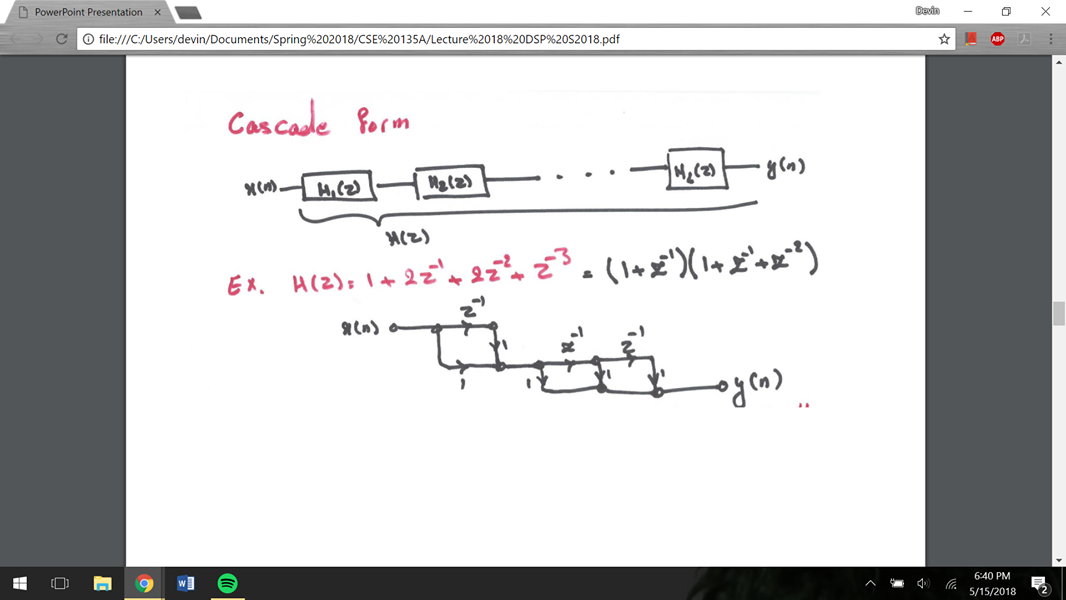 PowerPoint Presentation
Devin
file:///C:/Users/devin/Documents/Spring%202018/CSE%20135A/Lecture%2018%20DSP%20S2018.pdf
ABP
Cascade form
x(n) H₁(z) H₂(z) . . . H_L(z) y(n)
H(z)
Ex. H(z) = 1 + 2z⁻¹ + 2z⁻² + z⁻³ = (1+z⁻¹)(1+z⁻¹+z⁻²)
z⁻¹
x(n)
1 z⁻¹ z⁻¹
1 1 1 1
y(n)
W
6:40 PM
5/15/2018
2